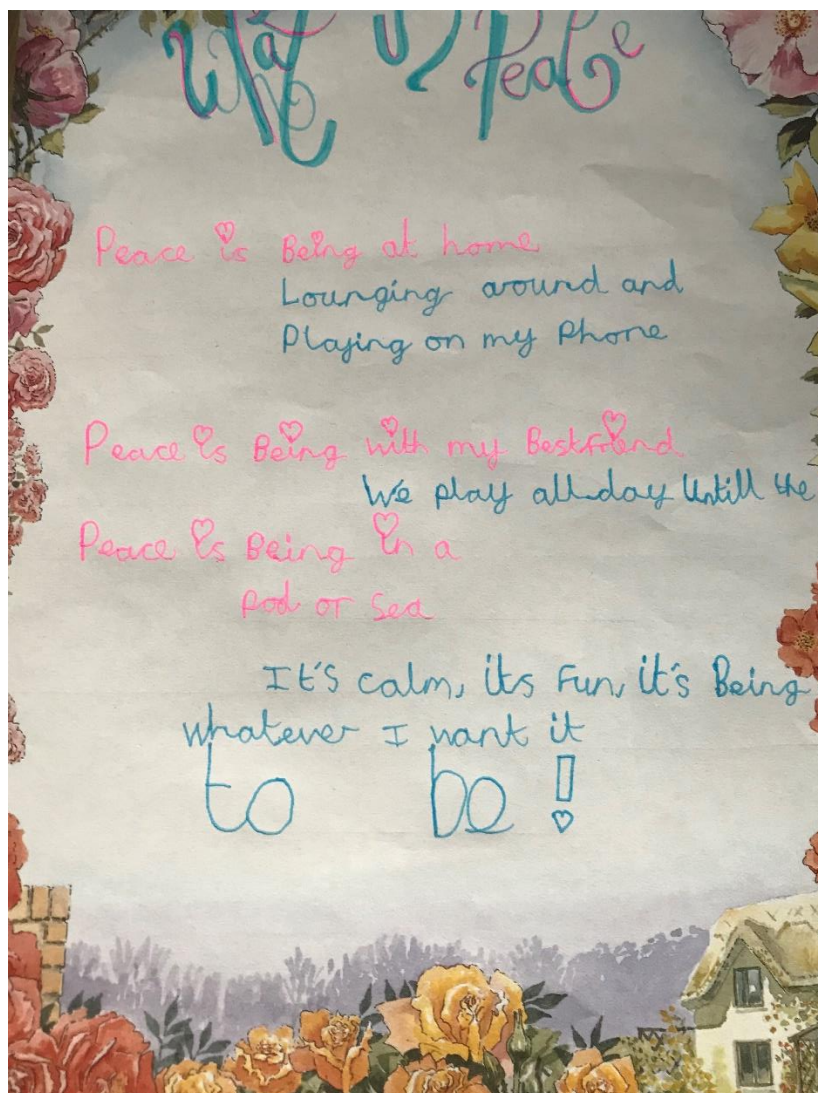 What is Peace
Peace is Being at home
Lounging around and
Playing on my Phone
Peace is Being with my Bestfriend
We play all day Untill the
Peace is Being in a
Pod or Sea
It's calm, its Fun, it's Being
whatever I want it
to be!